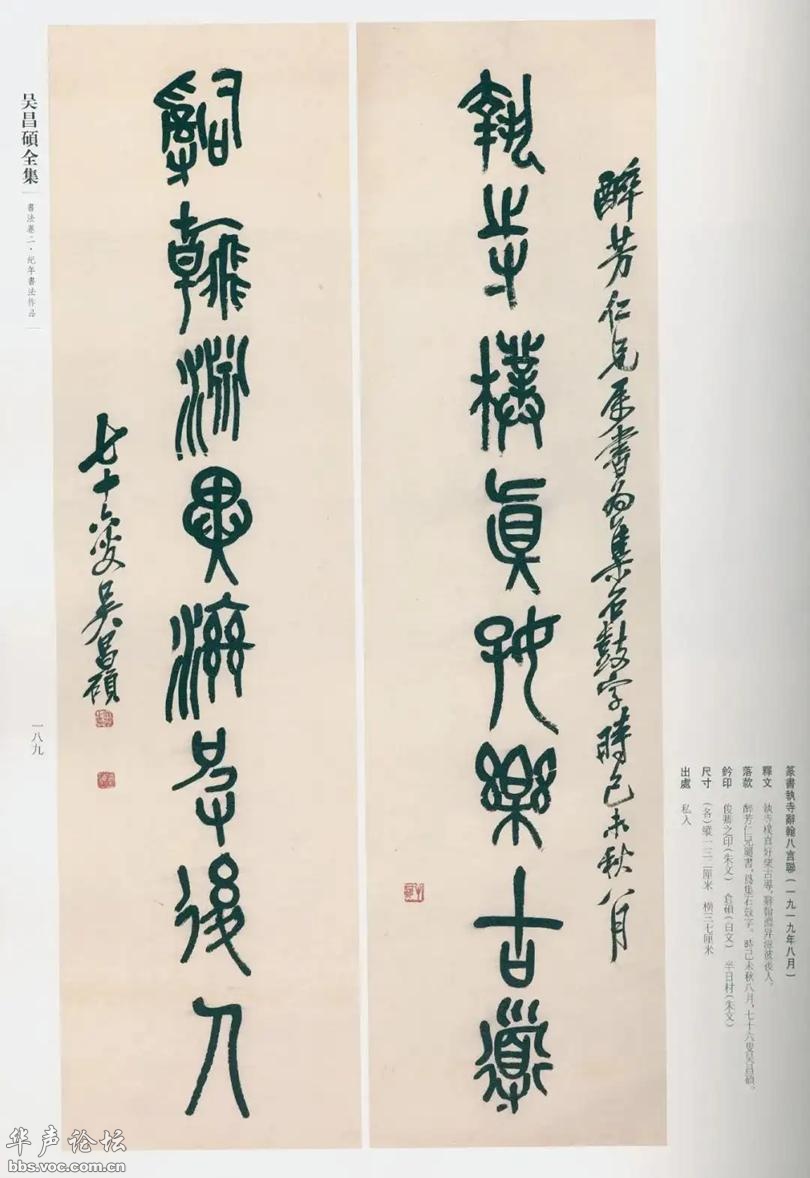 吴昌碩全集
書法卷二·纪年書法作品
一八九
醉芳仁兄属書為集石鼓字時己未秋八月
執寺樸真好樂古導
辭翰淵異後人
七十六叟吳昌碩
篆書執寺辭翰八言聯(一九一九年八月)
釋文 執寺樸真好樂古導,辭翰淵异後人。
落款 醉芳仁兄屬書,爲集石鼓字。時己未秋八月,七十六叟吴昌碩。
鈐印 俊卿之印(朱文) 倉碩(白文) 半日村(朱文)
尺寸 (各)縱一三二厘米 横三七厘米
出處 私人
华声论坛
bbs.voc.com.cn